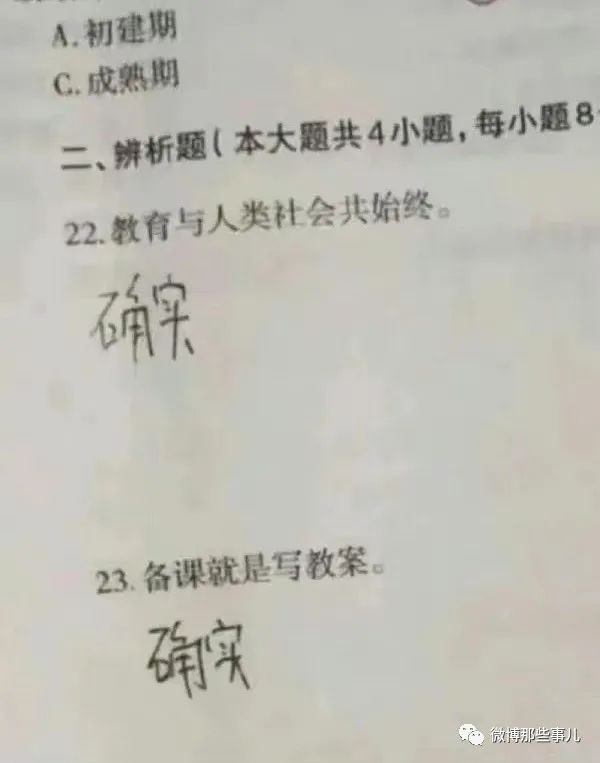 A.初建期
C.成熟期
二、辨析题(本大题共4小题,每小题8
22.教育与人类社会共始终。
确实
23.备课就是写教案。
确实
微博那些事儿